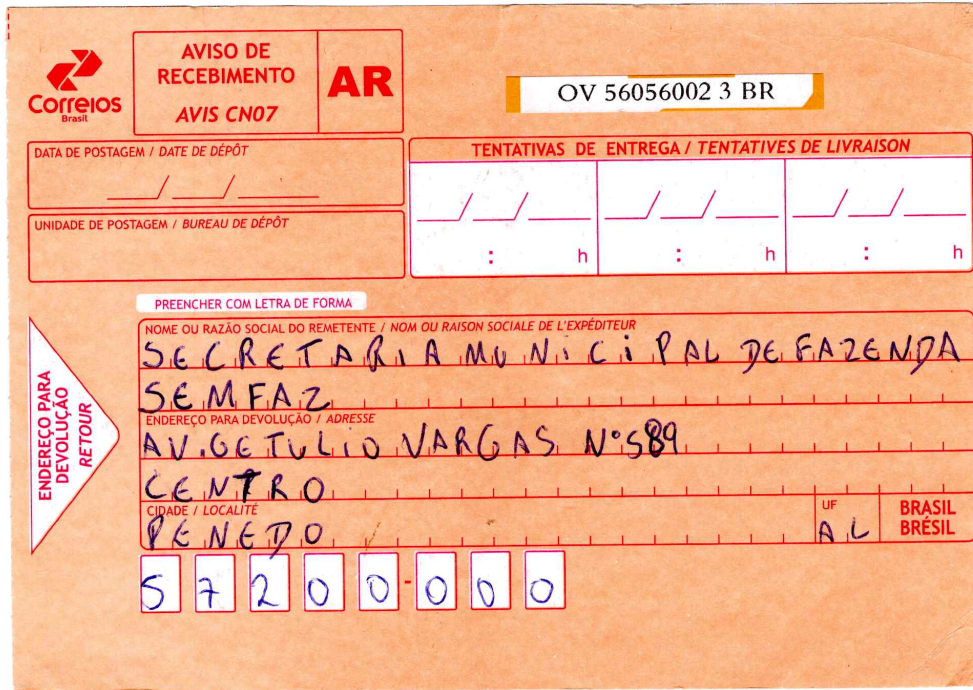 Correios
Brasil
AVISO DE
RECEBIMENTO
AVIS CN07
AR
OV 56056002 3 BR
DATA DE POSTAGEM / DATE DE DÉPÔT
__/__/____
UNIDADE DE POSTAGEM / BUREAU DE DÉPÔT
TENTATIVAS DE ENTREGA / TENTATIVES DE LIVRAISON
__/__/____ __/__/____ __/__/____
: h : h : h
PREENCHER COM LETRA DE FORMA
ENDEREÇO PARA
DEVOLUÇÃO
RETOUR
NOME OU RAZÃO SOCIAL DO REMETENTE / NOM OU RAISON SOCIALE DE L'EXPÉDITEUR
SECRETARIA MUNICIPAL DE FAZENDA
SEMFAZ
ENDEREÇO PARA DEVOLUÇÃO / ADRESSE
AV. GETULIO VARGAS Nº 589
CENTRO
CIDADE / LOCALITÉ
PENEDO
UF
AL
BRASIL
BRÉSIL
57200-000